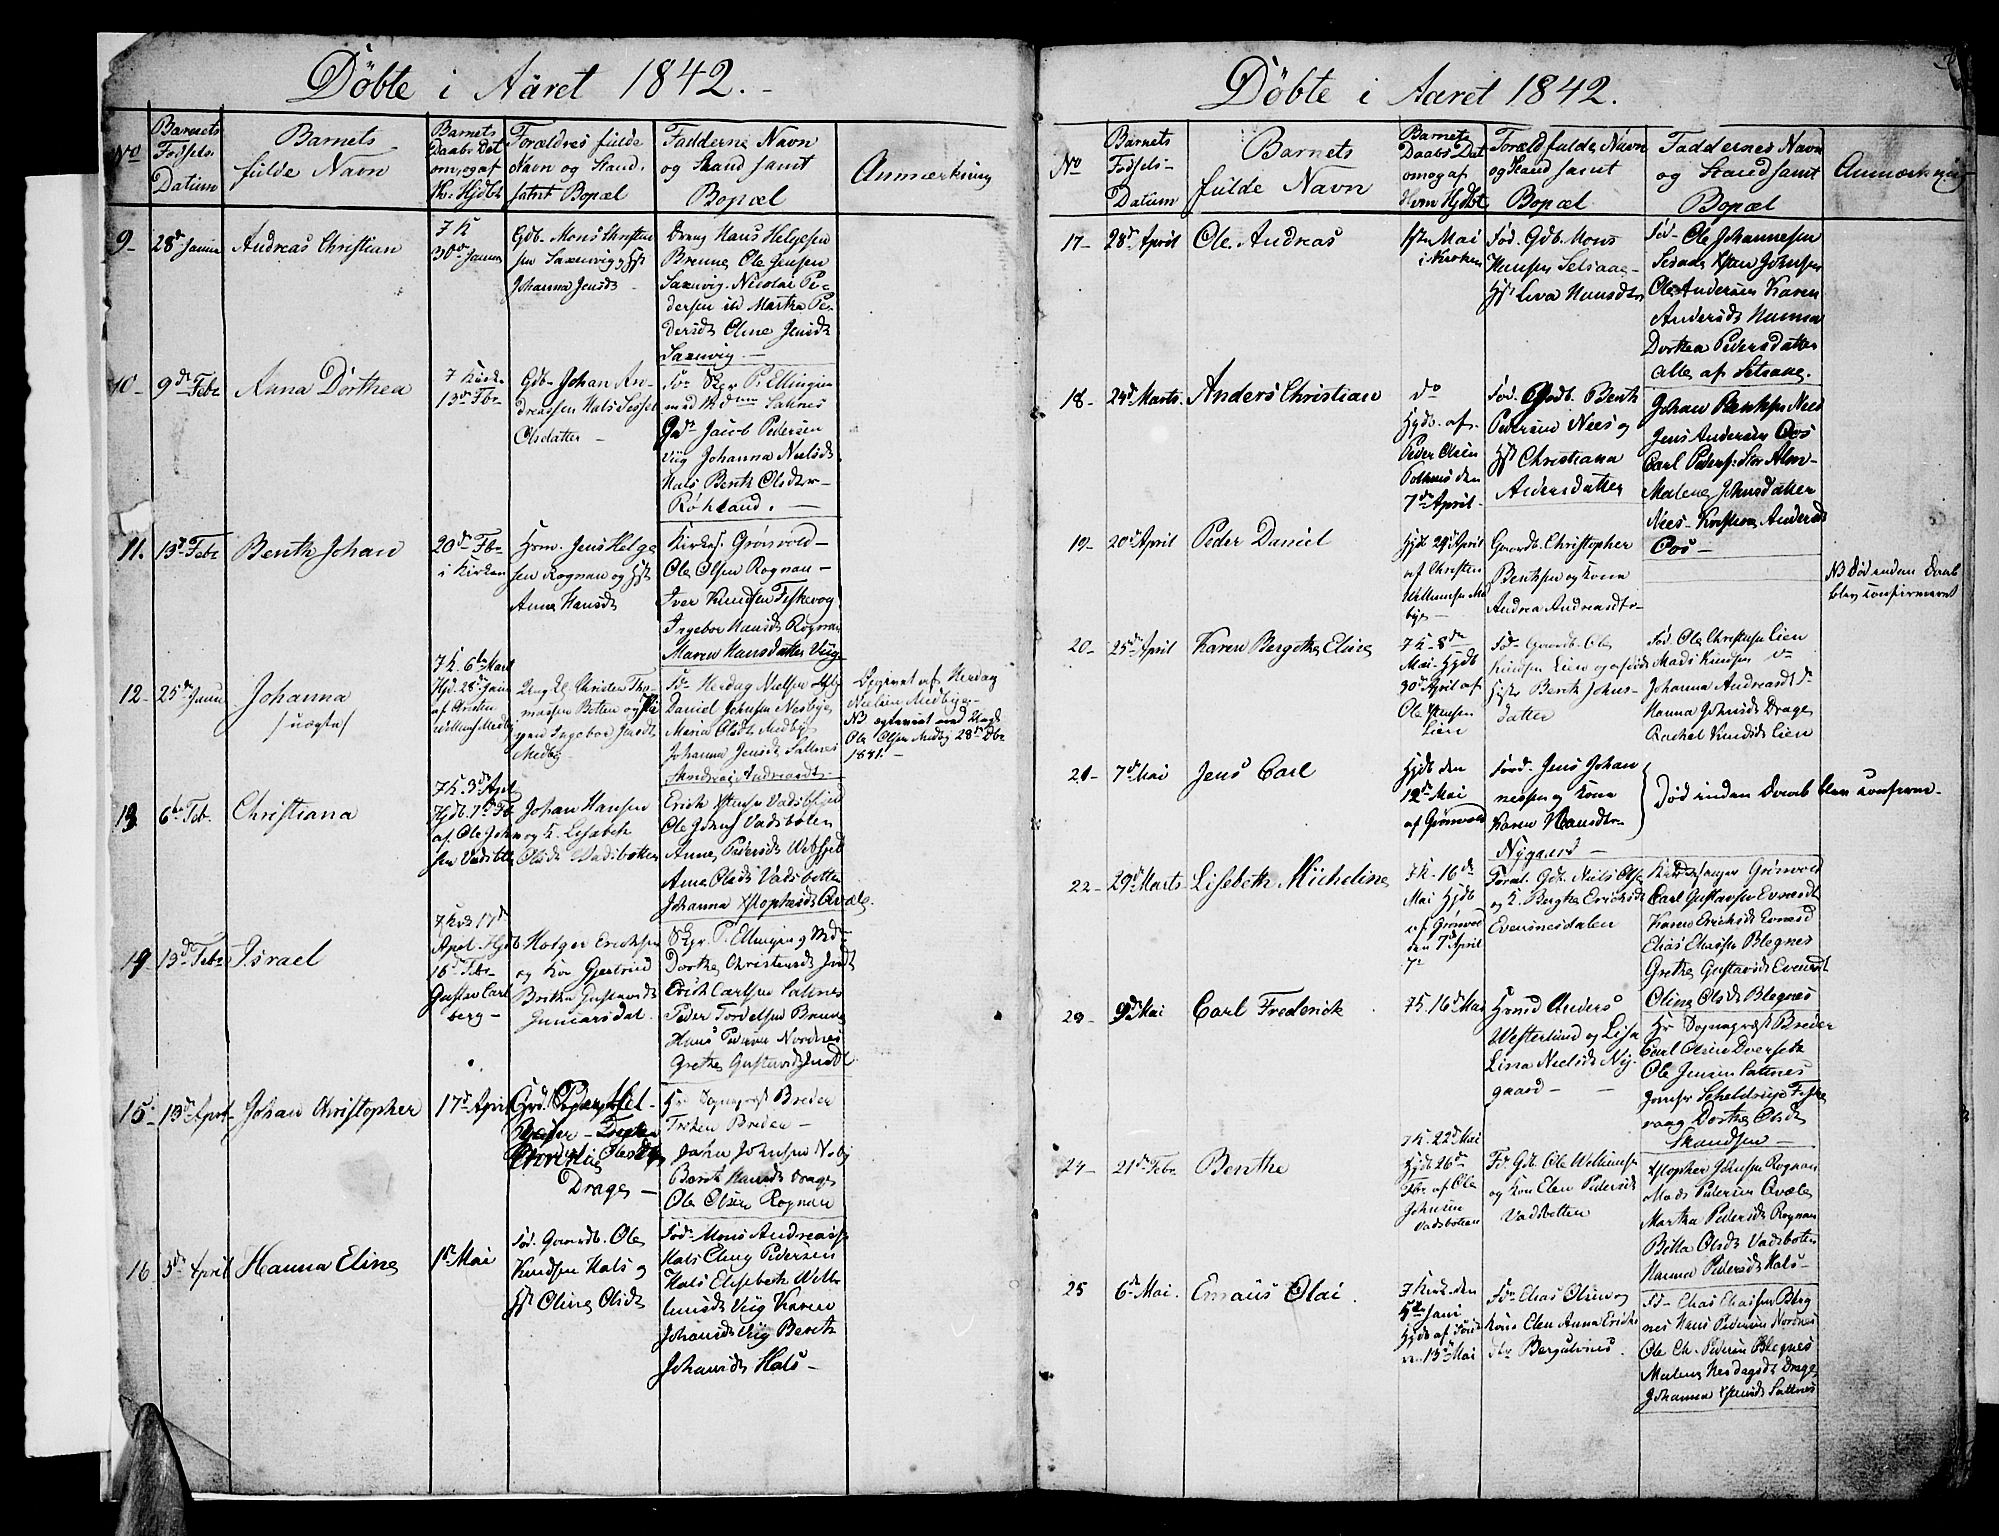 Döbte i Aaret 1842.
No
Barnets
Fødsels
Datum
Barnets
fulde Navn
Barnets
Daabs Dat
om, og af
Hv: Hjdbt
Forældres fulde
Navn og Stand,
samt Bopæl
Faddernes Navn
og Stand samt
Bopæl
Anmærkning
9 28de Januar Andreas Christian
7 K
30te Januar
Gdb. Mons Christen
sen Saxenvig og Hst
Johanna Jensdt
Dreng Hans Helgesen
Brenne Ole Jensen
Saxenvig. Nicolai Pe-
dersen ib Martha Pe-
dersdt Oline Jensdt
Saxenvig.
10 9de Febr Anna Dorthea
7 Kirke
13de Fbr
Gdb. Johan An-
dreassen Hals
Olsdatter
P: Ellingsen
Saltnes
Jacob Pedersen
Viig Johanna Nielsdt
Hals Berith Olsdtr
Røkland.
11. 13de Febr Benth Johan
20de Fbr
i Kirken
Hsm. Jens Helge
sen Rognan og Hst
Anne Hansdt
Kirkes. Grønvold
Ole Olsen Rognan
Iver Knudsen Fiskevog
Ingebor Hansdt Rognan
Maren Hansdatter Viig
12 25de Janu Johanna
/uægte/
7 K. 6te Mart
Hjd. 28de Janu
af Christen
Willumsen Medby
Ung K. Christen Tho-
massen Botten og Pi
gen Ingebor Jensdt
Medby
Herdag Nielsen Medby
Daniel Johnsen Nesbye
Maria Olsdt Medby
Johanna Jensdt Saltnes
Andreasdt
Opgivet af Herdag
Nielsen Medby
NB ægteviet med Ungk
Ole Olsen Medby 28de Dbr
1881.
13 6te Feb. Christiana
7 K. 3de April
Hjdb. 7de Fb
af Ole John
sen Vadsbotten
Johan Hansen
og K. Lisabeth
Olsdt Vadsbotten
Erich
Ole Johns Vadsboten
Anne Pedersdt
Anne Olsdt Vadsbotten
Johanna Xstophersdt Qvæle.
14 13de Febr Israel
7 Kirk 17de
April Hjdb
16de Febr
Gustav Carl
berg
Holger Erichsen
og Kone Gjertrud
Britha Gustavsdt
Junkersdal.
P. Ellingsen
Dorthea Christensdt
Erich Carlsen Saltnes
Peder Tordelsen Brenne
Hans Pedersen Nordnes
Grethe Gustavsdt
15 13de April Johan Christopher
17de April
Drage
Hr Sognepræst Breder
Fruen Breder
John Johnsen Nesby
Berith Hansdt Drage
Ole Olsen Rognan
16 3de April Hanna Eline
1ste Mai
Fød. Gaardb. Ole
Knudsen Hals og
Hst Oline Olsdt
Fød. Mons Andreassen
Hals Eling Pedersen
Hals Elisebeth Will-
umsdt Viig Karen
Johansdt Viig Bereth
Johansdt Hals
Döbte i Aaret 1842.
No
Barnets
Fødsels-
Datum
Barnets
fulde Navn
Barnets
Daabs Dat
om og af
Hvm Hjdbt
Foræld fulde Navn
og Stand samt
Bopæl
Faddernes Navn
og Stand samt
Bopæl
Anmærkning
17 28de April Ole Andreas
1ste Mai
i Kirken
Fød. Gdb. Mons
Hansen Setsaae
Hst Leva Hansdtr
Fød. Ole Johannesen
Setsaae Xstian Johnsen
Ole Andersen Karen
Andersdt Hanna
Dorthea Pedersdatter
Alle af Setsaae.
18 24de Marts Anders Christian
do
Hjdb. af
Peder Olsen
Pothus den
7de April
Fød. Gdb. Benth
Pedersen Nees og
Hst Christiana
Andersdatter
Johan Benthsen Nees
Jens Andersen Oos
Carl Peders: Stor Alm-
Malene Johnsdatter
Nees Kristina Andersdt
Oos
19 20de April Peder Daniel
Hjdb 29de April
af Christen
Willumsen Me
bye
Gaardb. Christopher
Benthsen og kone
Andrea Andreasdtr
NB Død inden Daab
blev confirmeret
20 25de April Karen Bergithe Eline
7 K. 8de
Mai Hjdb
30de April af
Ole
Lien
Fød. Gaardb. Ole
Knudsen Lien og
Hustr Berith Johns-
datter
Fød. Ole Christensen Lien
Mads Knudsen do
Johanna Andreasdt do
Hanna Johnsdt Drage
Rachel Knudsdt Lien
21 7de Mai Jens Carl
Hjdb den
12de Mai
af Grønvold
Foræl. Jens Johan
nessen og kone
Karen Hansdtr
Nygaard
Død inden Daab blev confirme.
22 29de Marts Lisebeth Micheline
7 K. 16de
Mai Hjdb
af Grønvold
den 7de April
Foræl. Gdb. Niels Olsen
og K. Bergithe Erichsdt
Evensnesdalen
Kirkesanger Grønvold
Carl Gustavsen Evensdt
Karen Erichsdt Evensd
Elias Eliassen Blegnes
Grethe Gustavsdt Evensdt
Oline Olsdt Blegnes
23 9de Mai Carl Frederick
7 K. 16de Mai
Hsmd Anders
Westerlund og Lisa
Lina Nielsdt Ny-
gaard
Hr Sognepræst Breder
Carl Olsen Dverseth
Ole Jensen Saltnes
Jomfr Scheldrup Fiske
vaag Dorthe Olsdt
Skandsen
24 21de Febr Benthe
7 K. 22de Mai
Hjdb 26de
Febr af Ole
Johnsen
Vadsbotten
Fr Gdb. Ole Willumsen
og Kon Elen Pedersdt
Vadsbotten
Xstopher Johnsen Rognan
Mads Pedersen Qvæle
Martha Pedersdt Rognan
Bitta Olsdt Vadsboten
Hanna Pedersdt Hals
25 6te Mai. Emaus Olai.
7 Kirk. den
5te Juni
Hjdb af
13de Mai
Fdr Elias Olsen og
kone Elen Anna Erichs
dtr Bergulvnes.
Fd Elias Eliassen Bleg
nes Hans Pedersen Nordnes
Ole Ch. Pedersen Blegnes
Malene Herdagsdt Drage
Johanna Jensdt Saltnes